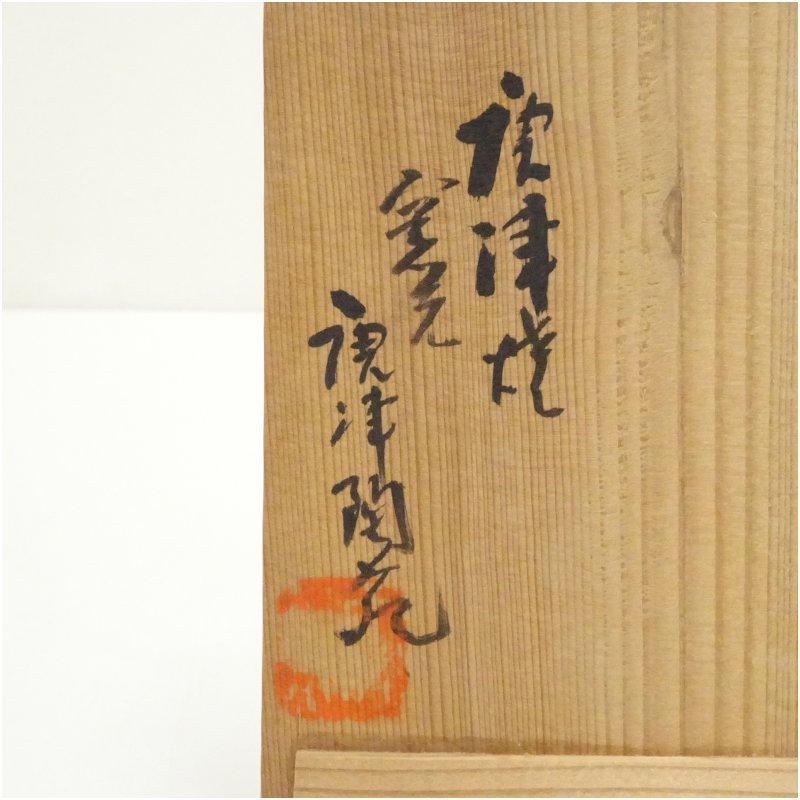 唐津焼
窯元
唐津陶苑